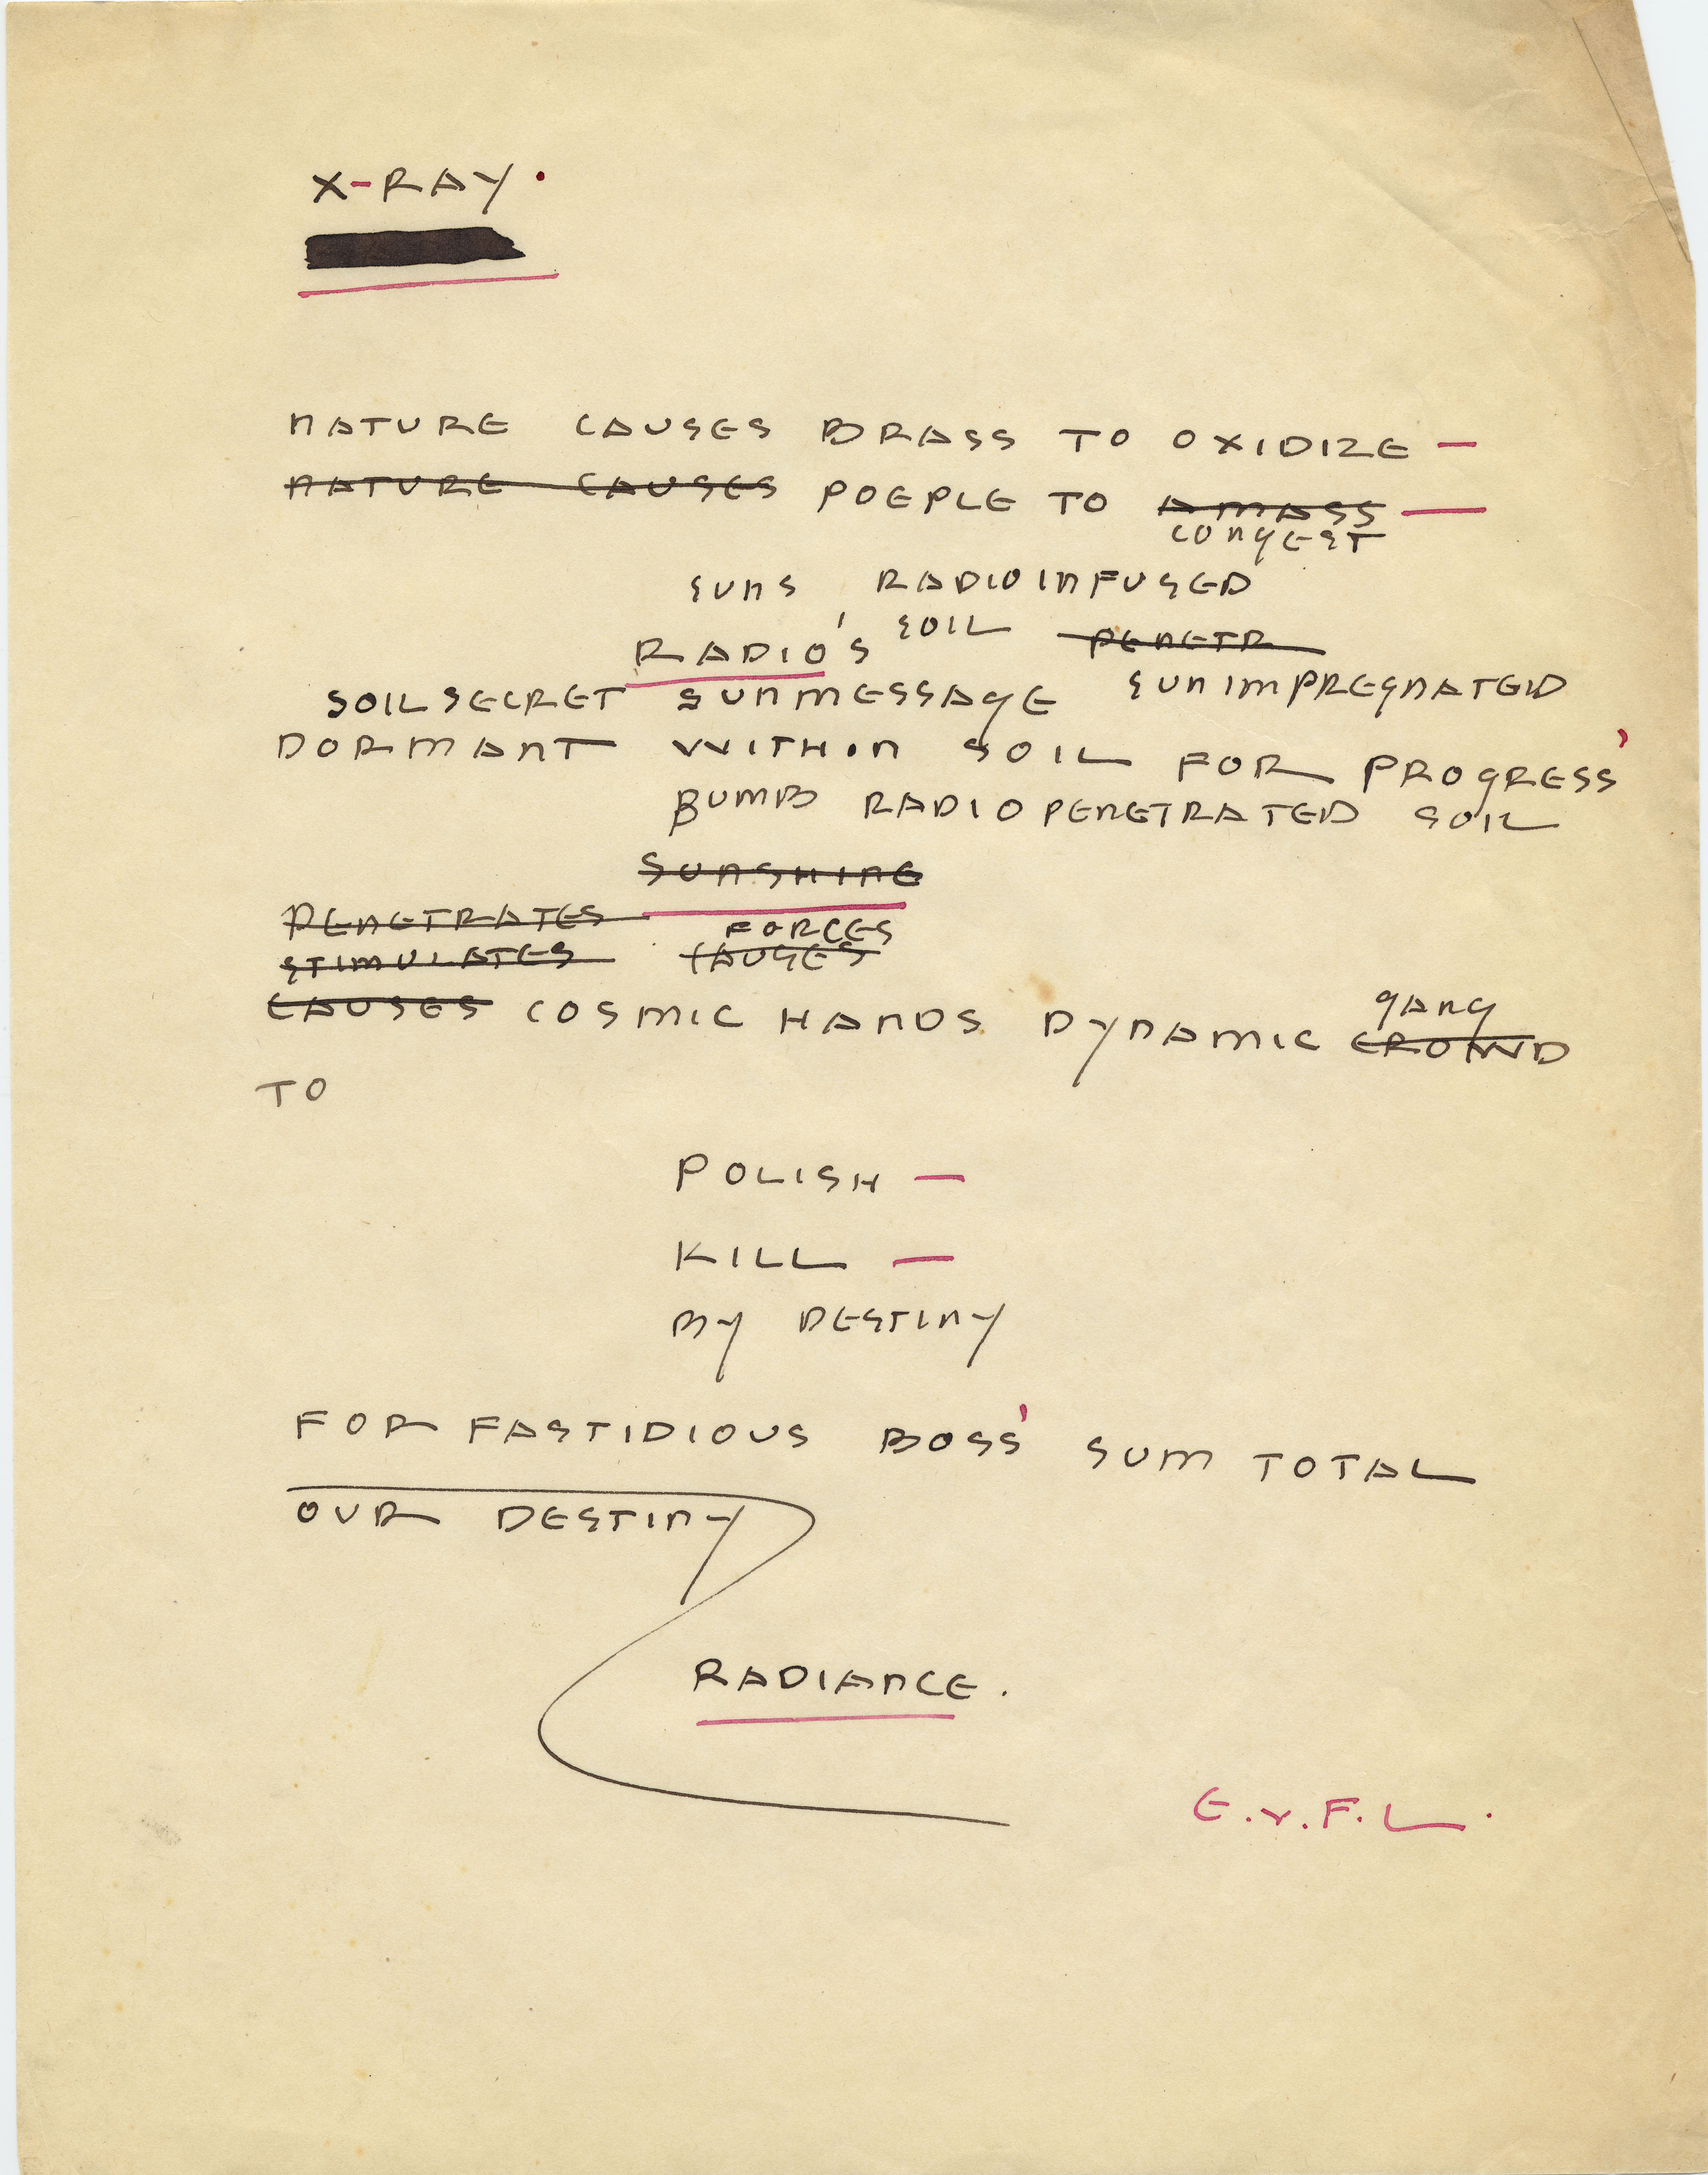 X-RAY.
NATURE CAUSES BRASS TO OXIDIZE —
NATURE CAUSES POEPLE TO AMASS —
CONGEST
SUNS RADIOINFUSED
RADIO'S SOIL PENETR
SOILSECRET SUNMESSAGE SUNIMPREGNATED
DORMANT WITHIN SOIL FOR PROGRESS'
BUMB RADIOPENETRATED SOIL
SUNSHINE
PENETRATES FORCES
STIMULATES CAUSES
CAUSES COSMIC HANDS DYNAMIC CROWD
GANG
TO
POLISH —
KILL —
BY DESTINY
FOR FASTIDIOUS BOSS' SUM TOTAL
OUR DESTINY
RADIANCE.
E.v.F.L.